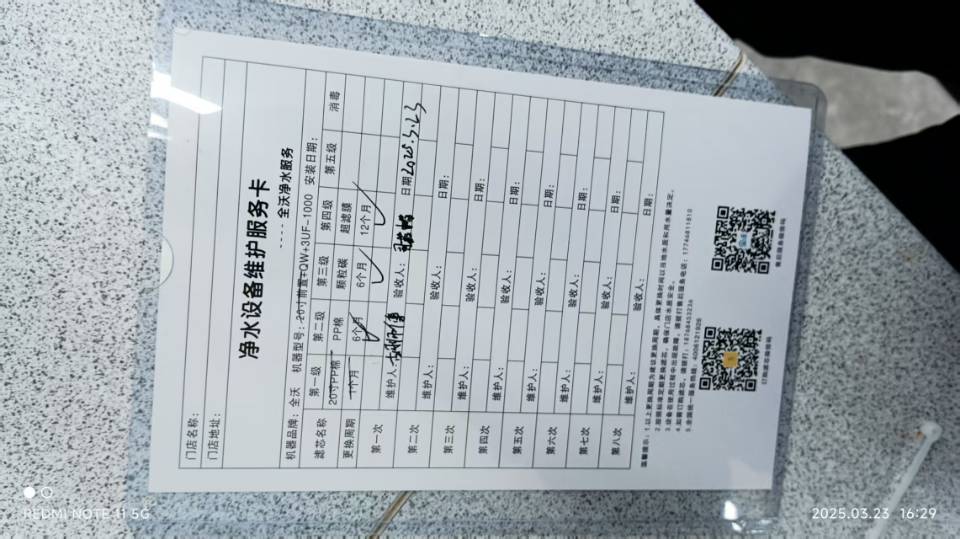 门店名称:
门店地址:
净水设备维护服务卡
---- 全沃净水服务
机器品牌: 全沃 机器型号: 20寸前置+QW+3UF-1000 安装日期:
滤芯名称 第一级 第二级 第三级 第四级 第五级 消毒
20寸PP棉 PP棉 颗粒碳 超滤膜
更换周期 1个月 6个月 6个月 12个月
第一次 维护人: 验收人: 日期: 2025.3.23
第二次 维护人: 验收人: 日期:
第三次 维护人: 验收人: 日期:
第四次 维护人: 验收人: 日期:
第五次 维护人: 验收人: 日期:
第六次 维护人: 验收人: 日期:
第七次 维护人: 验收人: 日期:
第八次 维护人: 验收人: 日期:
温馨提示: 1.以上更换周期为建议更换周期, 具体更换时间以当地水质和用水量决定。
2.按照标准定期更换滤芯, 确保门店水质安全。
3.设备在使用过程中出现故障, 请拨打售后服务电话: 17746811810
4.如需订购滤芯, 请拨打: 18768453236
5.全国统一服务热线: 4006121806
订购滤芯微信码
售后服务微信码
REDMI NOTE 11 5G
2025.03.23 16:29